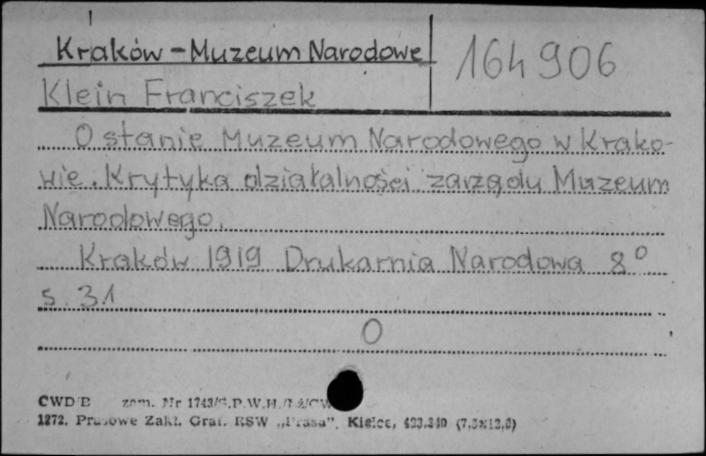 Kraków – Muzeum Narodowe
164906
Klein Franciszek
O stanie Muzeum Narodowego w Krako-
wie. Krytyka działalności zarządu Muzeum
Narodowego.
Kraków 1919 Drukarnia Narodowa 8°
s. 31
O
CWD zam. Nr
1272. Prasowe Zakł. Graf. RSW „Prasa”, Kielce,